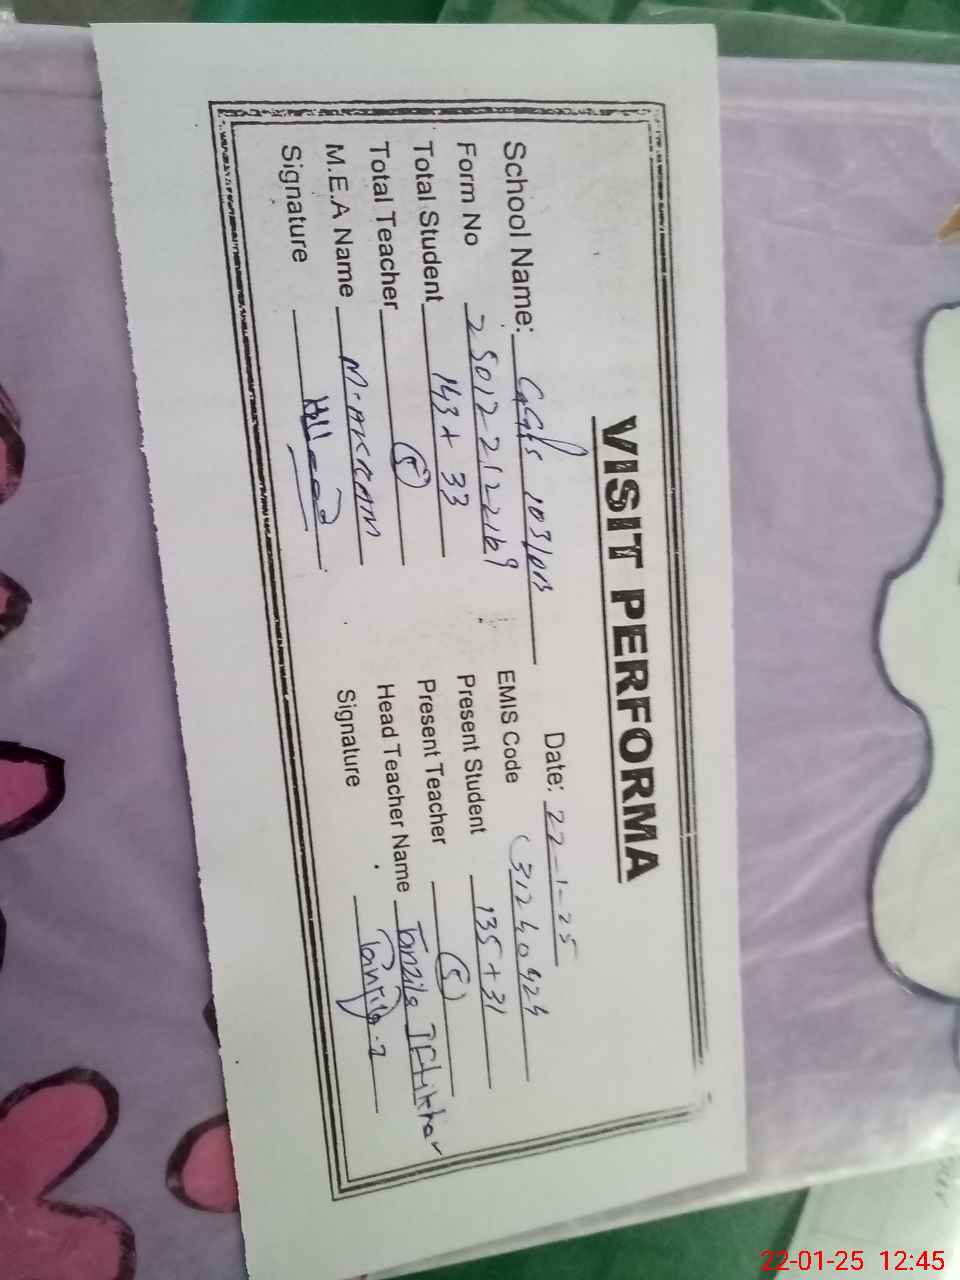 VISIT PERFORMA
Date: 22-1-25
School Name: GGPS 103/DB
EMIS Code 31240424
Form No 25012212169
Present Student 135+31
Total Student 143+33
Present Teacher (5)
Total Teacher (5)
Head Teacher Name Tanzila Iftikhar
M.E.A Name M-AKRAM
Signature
Signature Tanzila.I
22-01-25 12:45